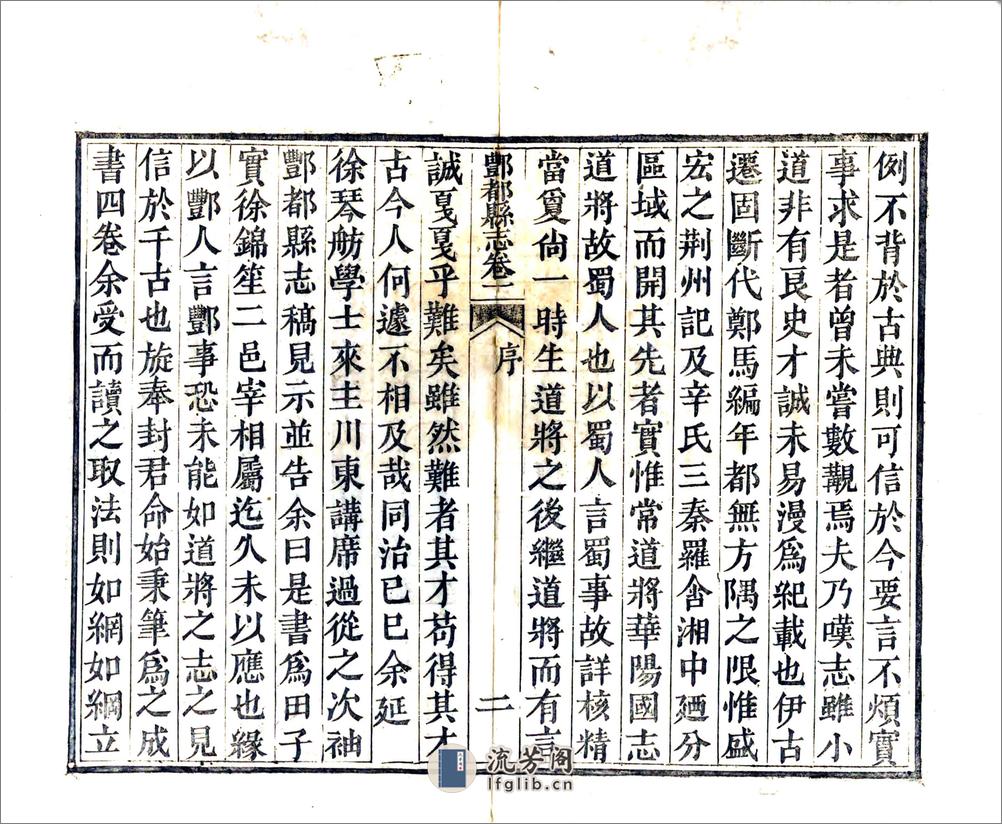 例不背於古典則可信於今要言不煩實
事求是者曾未嘗數覯焉夫乃嘆志雖小
道非有良史才誠未易漫爲紀載也伊古
遷固斷代鄭馬編年都無方隅之限惟盛
宏之荆州記及辛氏三秦羅含湘中廼分
區域而開其先者實惟常道將華陽國志
道將故蜀人也以蜀人言蜀事故詳核精
當敻尙一時生道將之後繼道將而有言
酆都縣志卷一 序 二
誠戛戛乎難矣雖然難者其才苟得其才
古今人何遽不相及哉同治己巳余延
徐琴舫學士來主川東講席過從之次袖
酆都縣志稿見示並告余曰是書爲田子
實徐錦笙二邑宰相屬迄久未以應也緣
以酆人言酆事恐未能如道將之志之見
信於千古也旋奉封君命始秉筆爲之成
書四卷余受而讀之取法則如綱如綱立
流芳阁
lfglib.cn